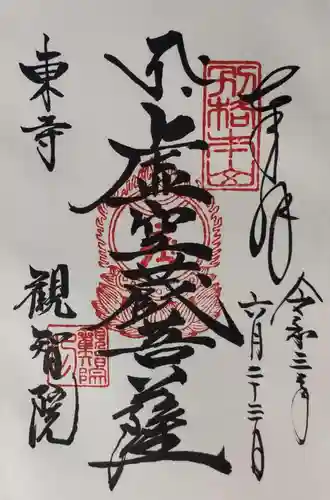 奉拝
令和三年
六月二十二日
虚空蔵菩薩
別格本山
東寺
観智院